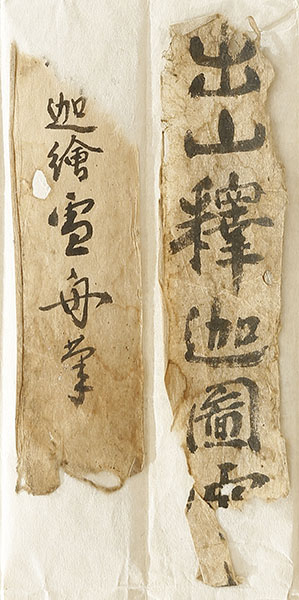 出山釋迦圖
迦繪雪舟筆